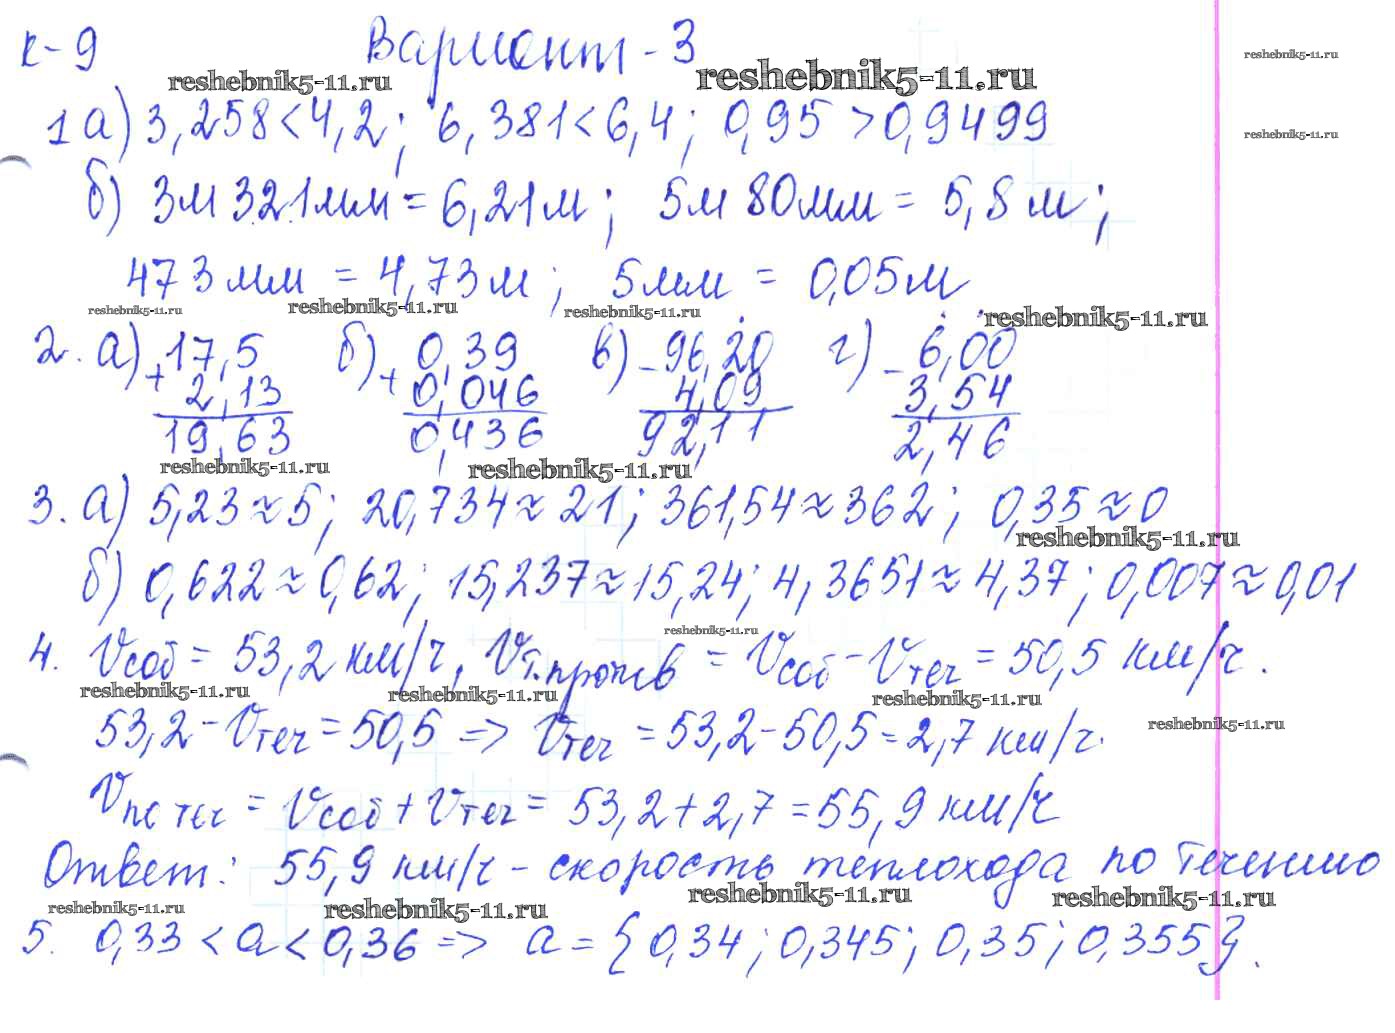 К-9 Вариант-3
reshebnik5-11.ru reshebnik5-11.ru reshebnik5-11.ru
1 а) 3,258 < 4,2; 6,381 < 6,4; 0,95 > 0,9499 reshebnik5-11.ru
б) 3м 321мм = 6,21м; 5м 80мм = 5,8м;
473мм = 4,73м; 5мм = 0,05м
reshebnik5-11.ru reshebnik5-11.ru reshebnik5-11.ru reshebnik5-11.ru
2. а) + 17,5 б) + 0,39 в) - 96,20 г) - 6,00
2,13 0,046 4,09 3,54
19,63 0,436 92,11 2,46
reshebnik5-11.ru reshebnik5-11.ru
3. а) 5,23 ≈ 5; 20,734 ≈ 21; 361,54 ≈ 362; 0,35 ≈ 0
reshebnik5-11.ru
б) 0,622 ≈ 0,62; 15,237 ≈ 15,24; 4,3651 ≈ 4,37; 0,007 ≈ 0,01
reshebnik5-11.ru
4. Vсоб = 53,2 км/ч, Vт.против = Vсоб - Vтеч = 50,5 км/ч.
reshebnik5-11.ru reshebnik5-11.ru reshebnik5-11.ru
53,2 - Vтеч = 50,5 => Vтеч = 53,2 - 50,5 = 2,7 км/ч. reshebnik5-11.ru
Vпо теч = Vсоб + Vтеч = 53,2 + 2,7 = 55,9 км/ч
Ответ: 55,9 км/ч - скорость теплохода по течению
reshebnik5-11.ru reshebnik5-11.ru reshebnik5-11.ru reshebnik5-11.ru
5. 0,33 < а < 0,36 => а = {0,34; 0,345; 0,35; 0,355}.